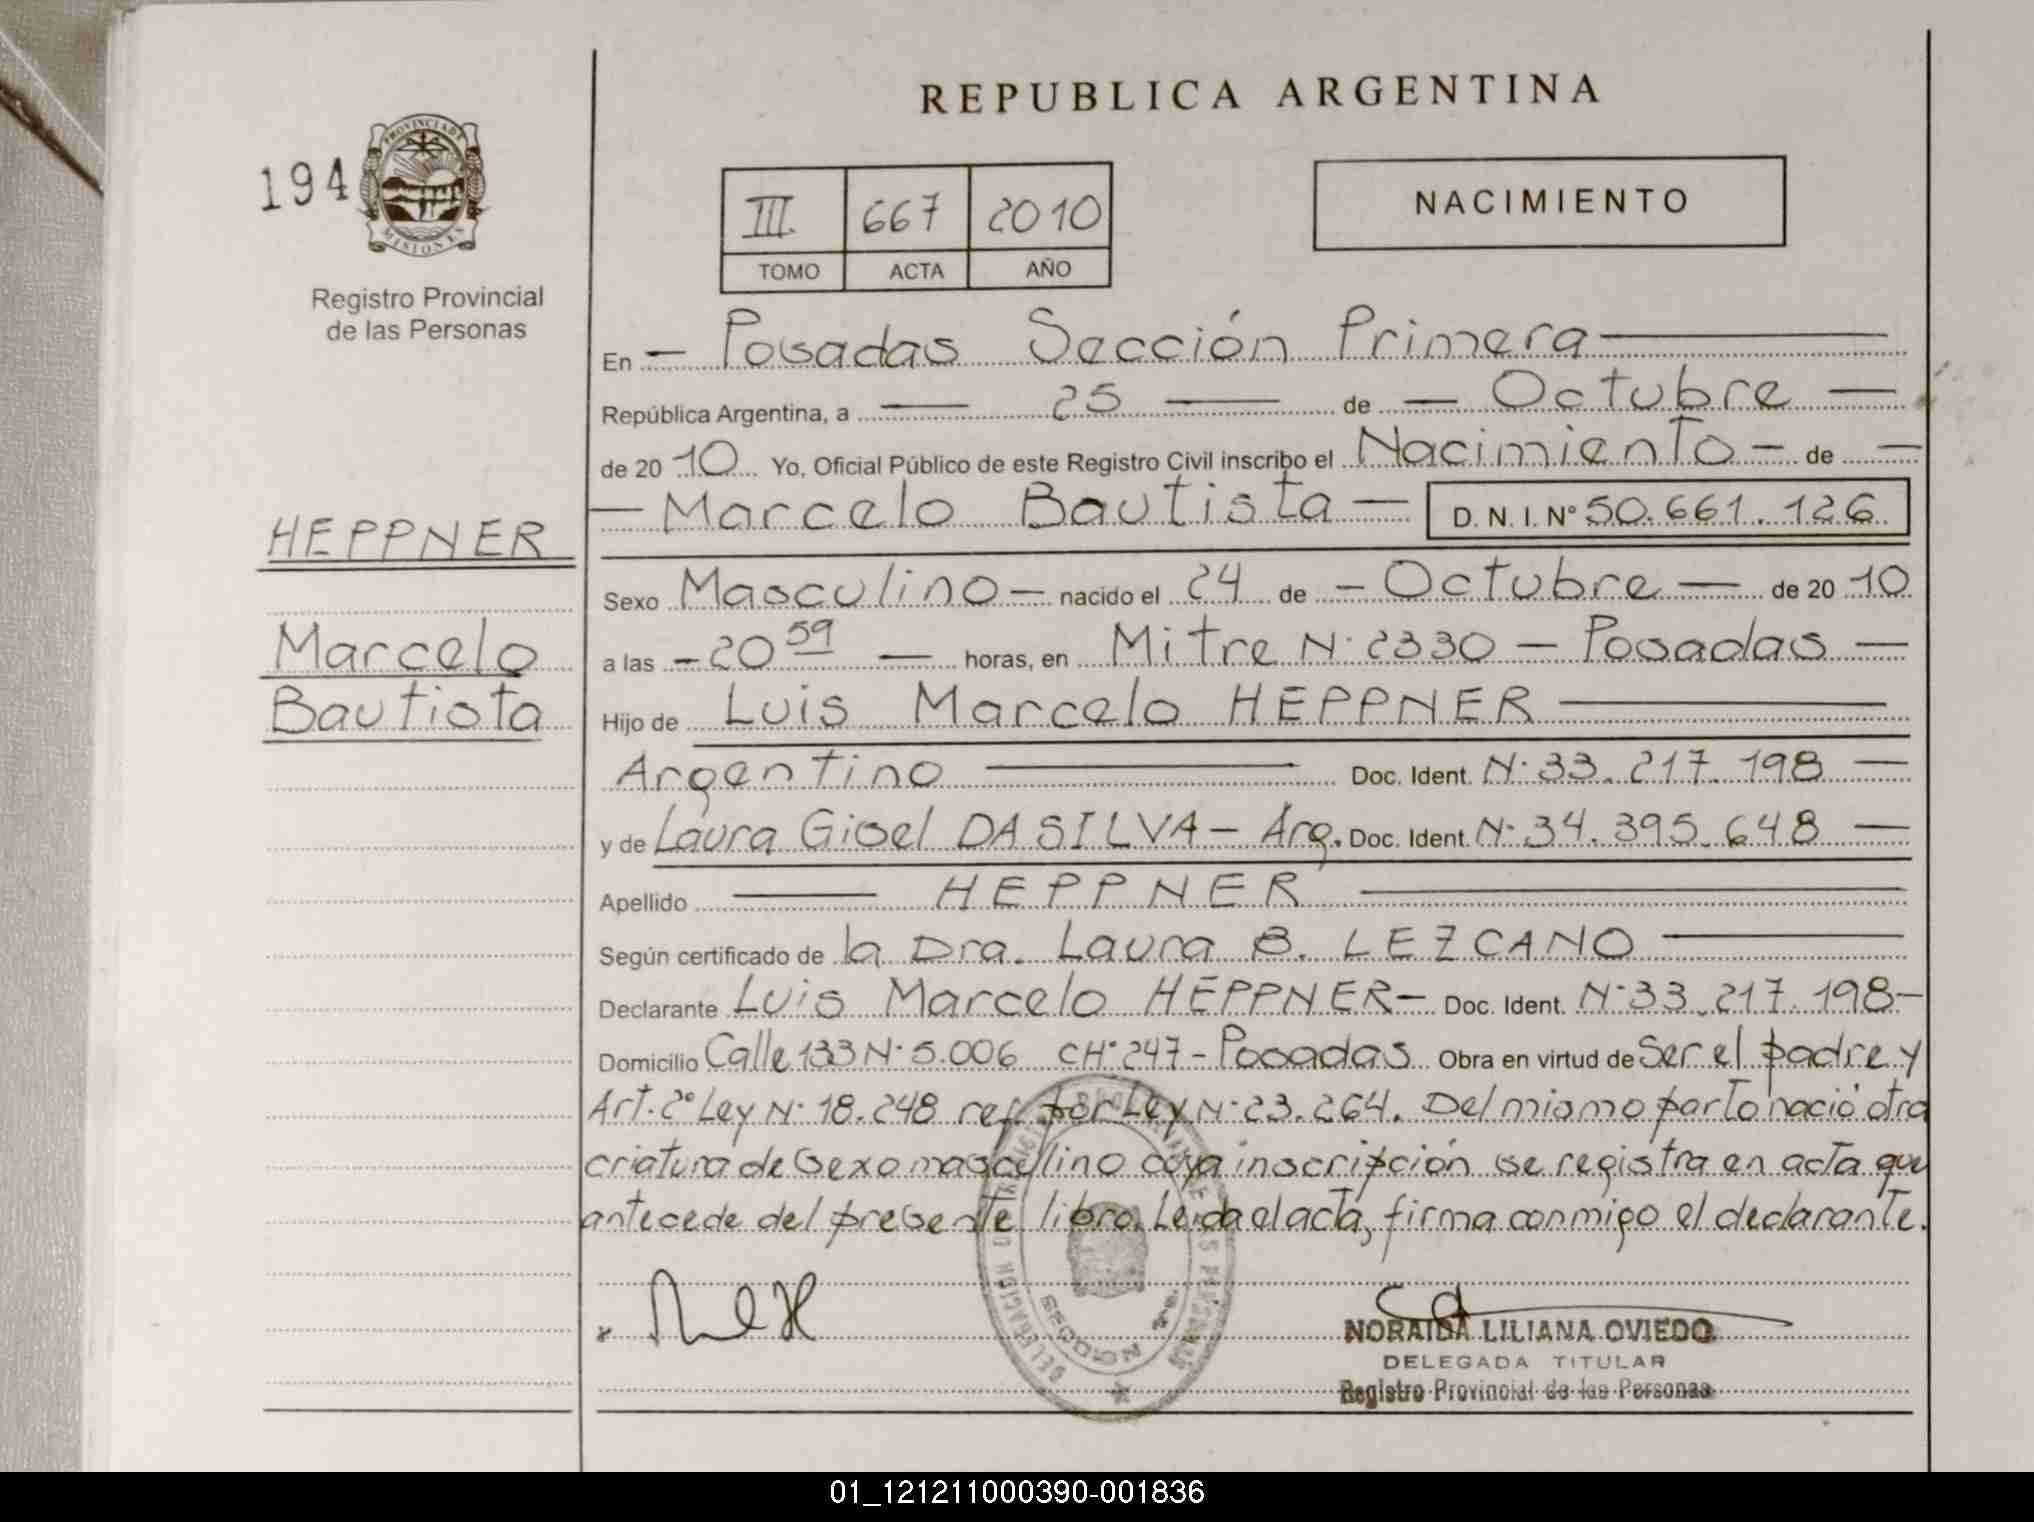 REPUBLICA ARGENTINA
194
PROVINCIA DE MISIONES
Registro Provincial
de las Personas
III 667 2010
TOMO ACTA AÑO
NACIMIENTO
En - Posadas Sección Primera
República Argentina, a 25 de - Octubre -
de 20 10 Yo, Oficial Público de este Registro Civil inscribo el Nacimiento - de -
- Marcelo Bautista - D.N.I. N° 50.661.126
HEPPNER
Marcelo
Bautista
Sexo Masculino - nacido el 24 de - Octubre - de 20 10
a las - 20 59 - horas, en Mitre N° 2330 - Posadas -
Hijo de Luis Marcelo HEPPNER
Argentino Doc. Ident. N° 33.217.198 -
y de Laura Gisel DA SILVA - Arg. Doc. Ident. N° 34.395.648 -
Apellido HEPPNER
Según certificado de la Dra. Laura B. LEZCANO
Declarante Luis Marcelo HEPPNER - Doc. Ident. N° 33.217.198 -
Domicilio Calle 133 N° 5.006 CH° 247 - Posadas Obra en virtud de Ser el padre y
Art. 2° Ley N° 18.248 ref. por Ley N° 23.264. Del mismo parto nació otra
criatura de sexo masculino cuya inscripción se registra en acta que
antecede del presente libro. Leida el acta, firma conmigo el declarante.
NORAIDA LILIANA OVIEDO
DELEGADA TITULAR
Registro Provincial de las Personas
01_121211000390-001836